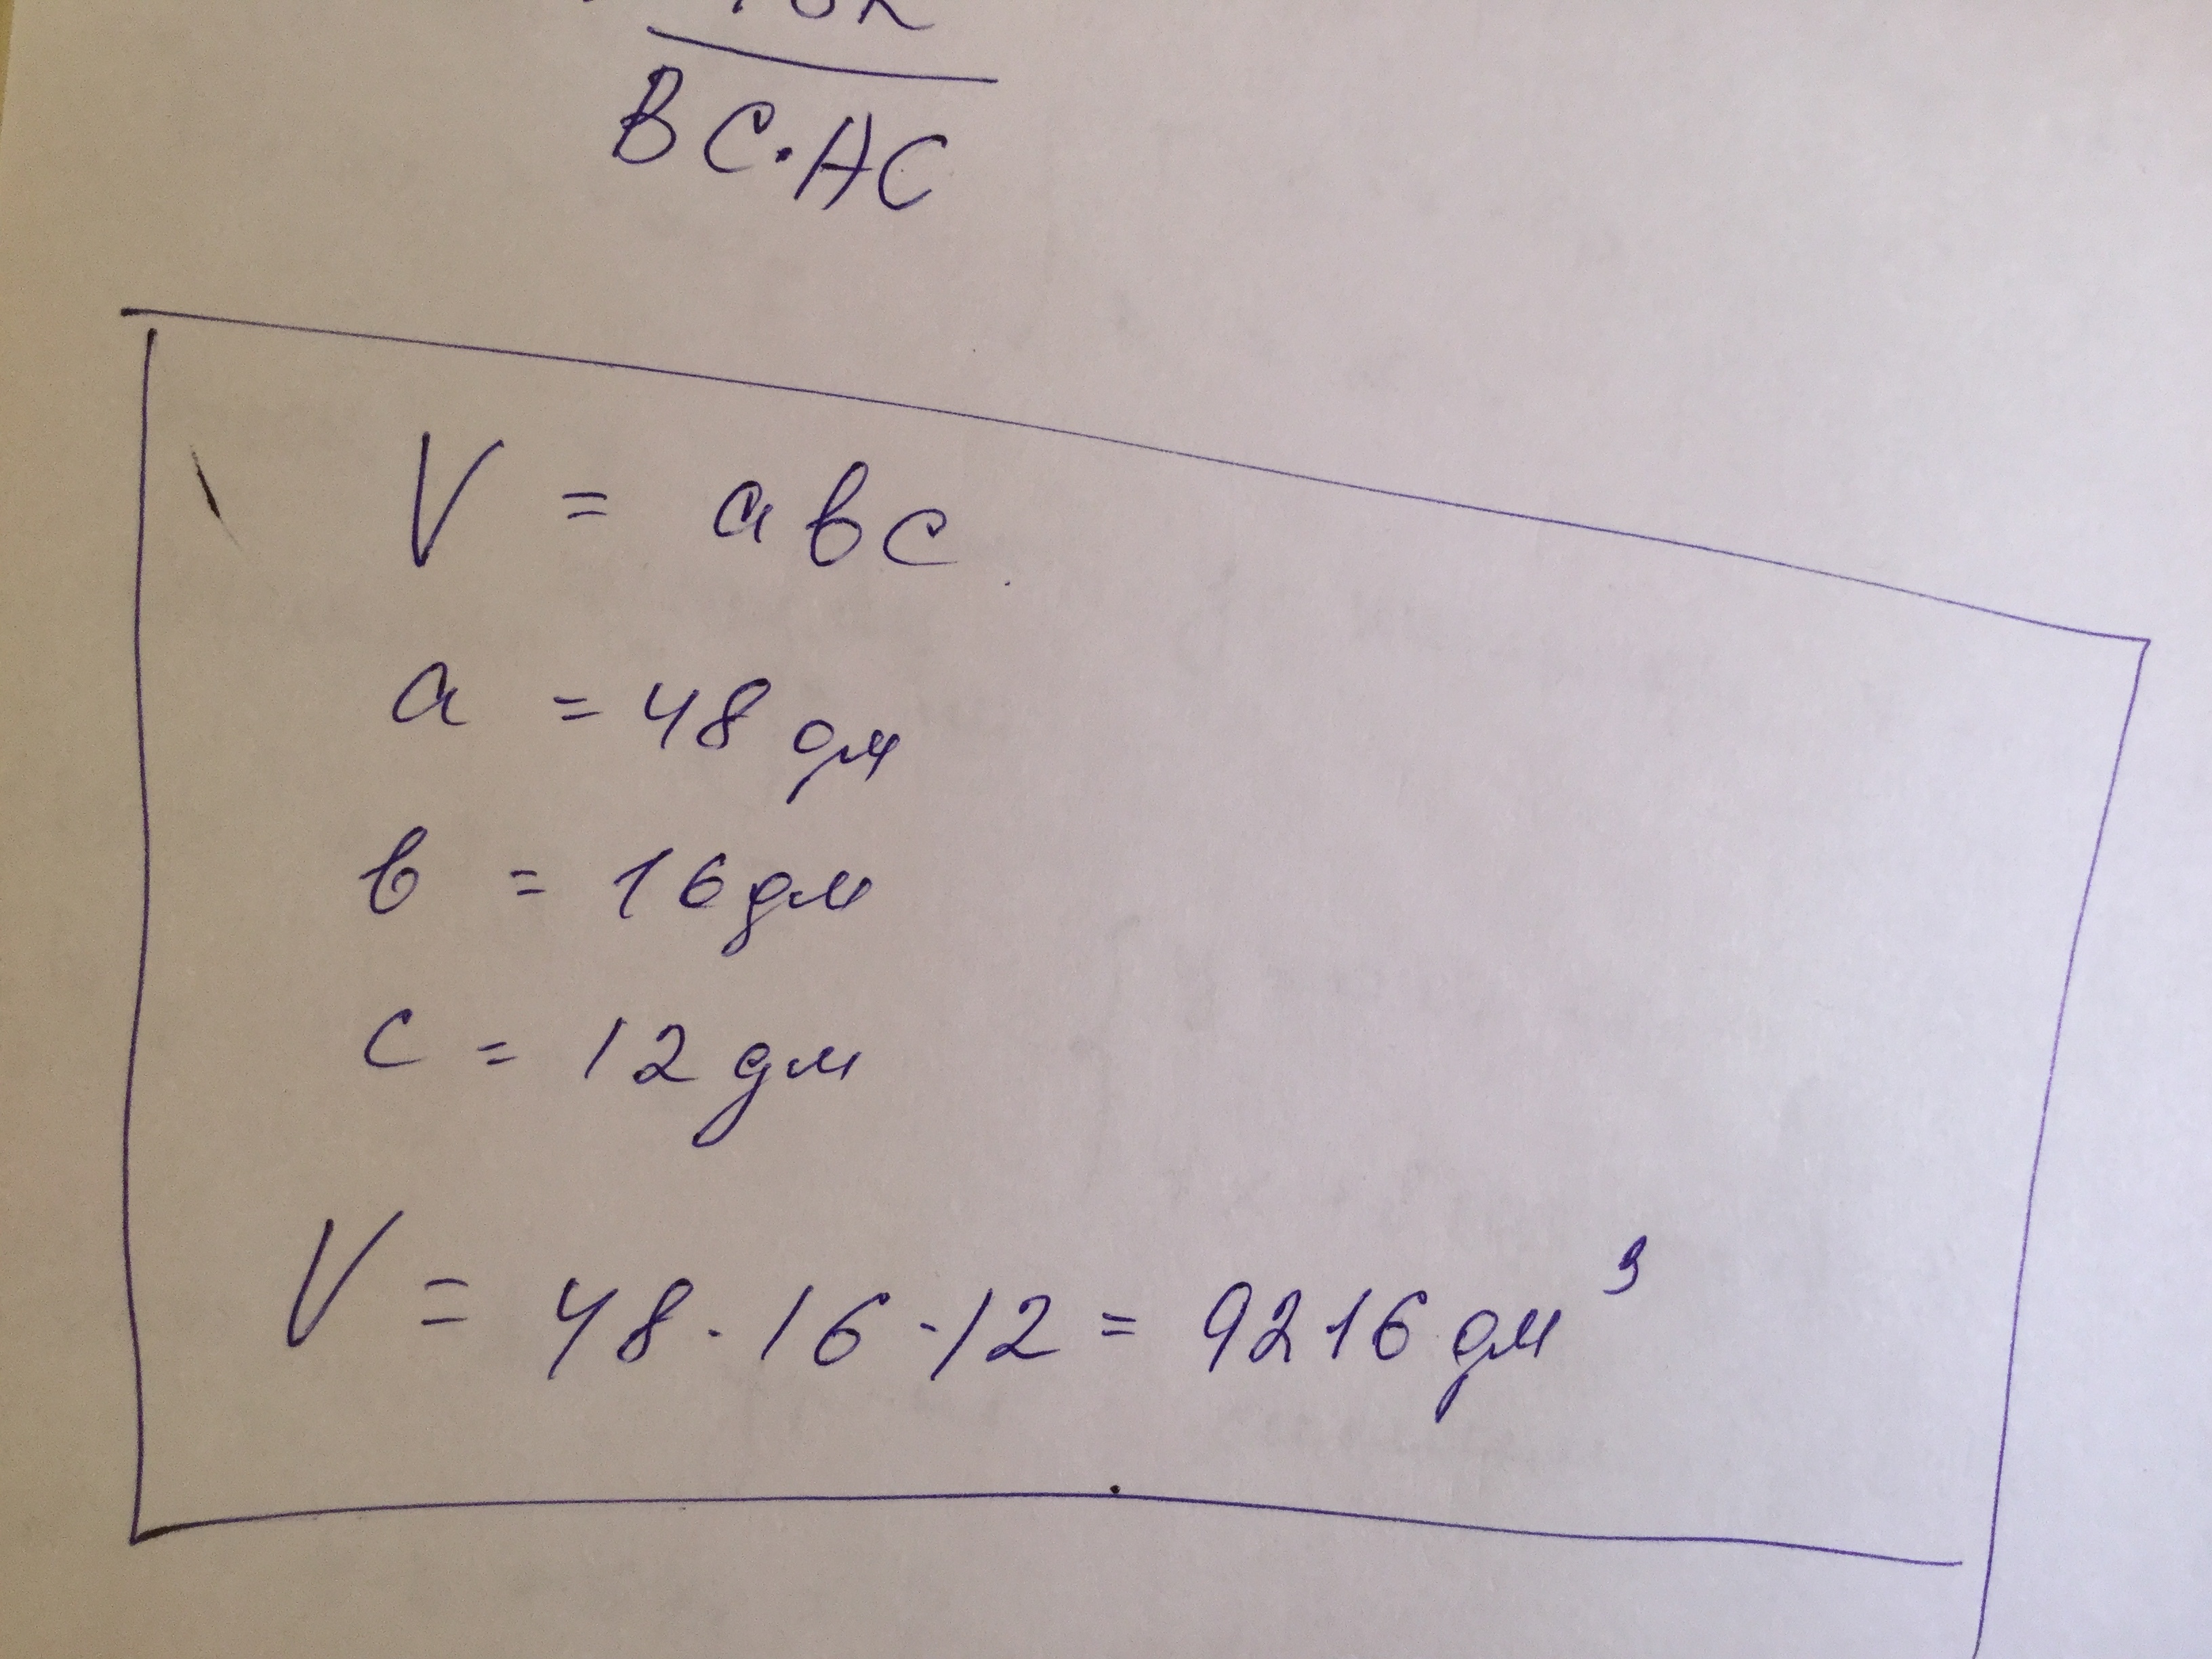 BC·AC
V = авс
а = 48 дм
в = 16 дм
с = 12 дм
V = 48 · 16 · 12 = 9216 дм³